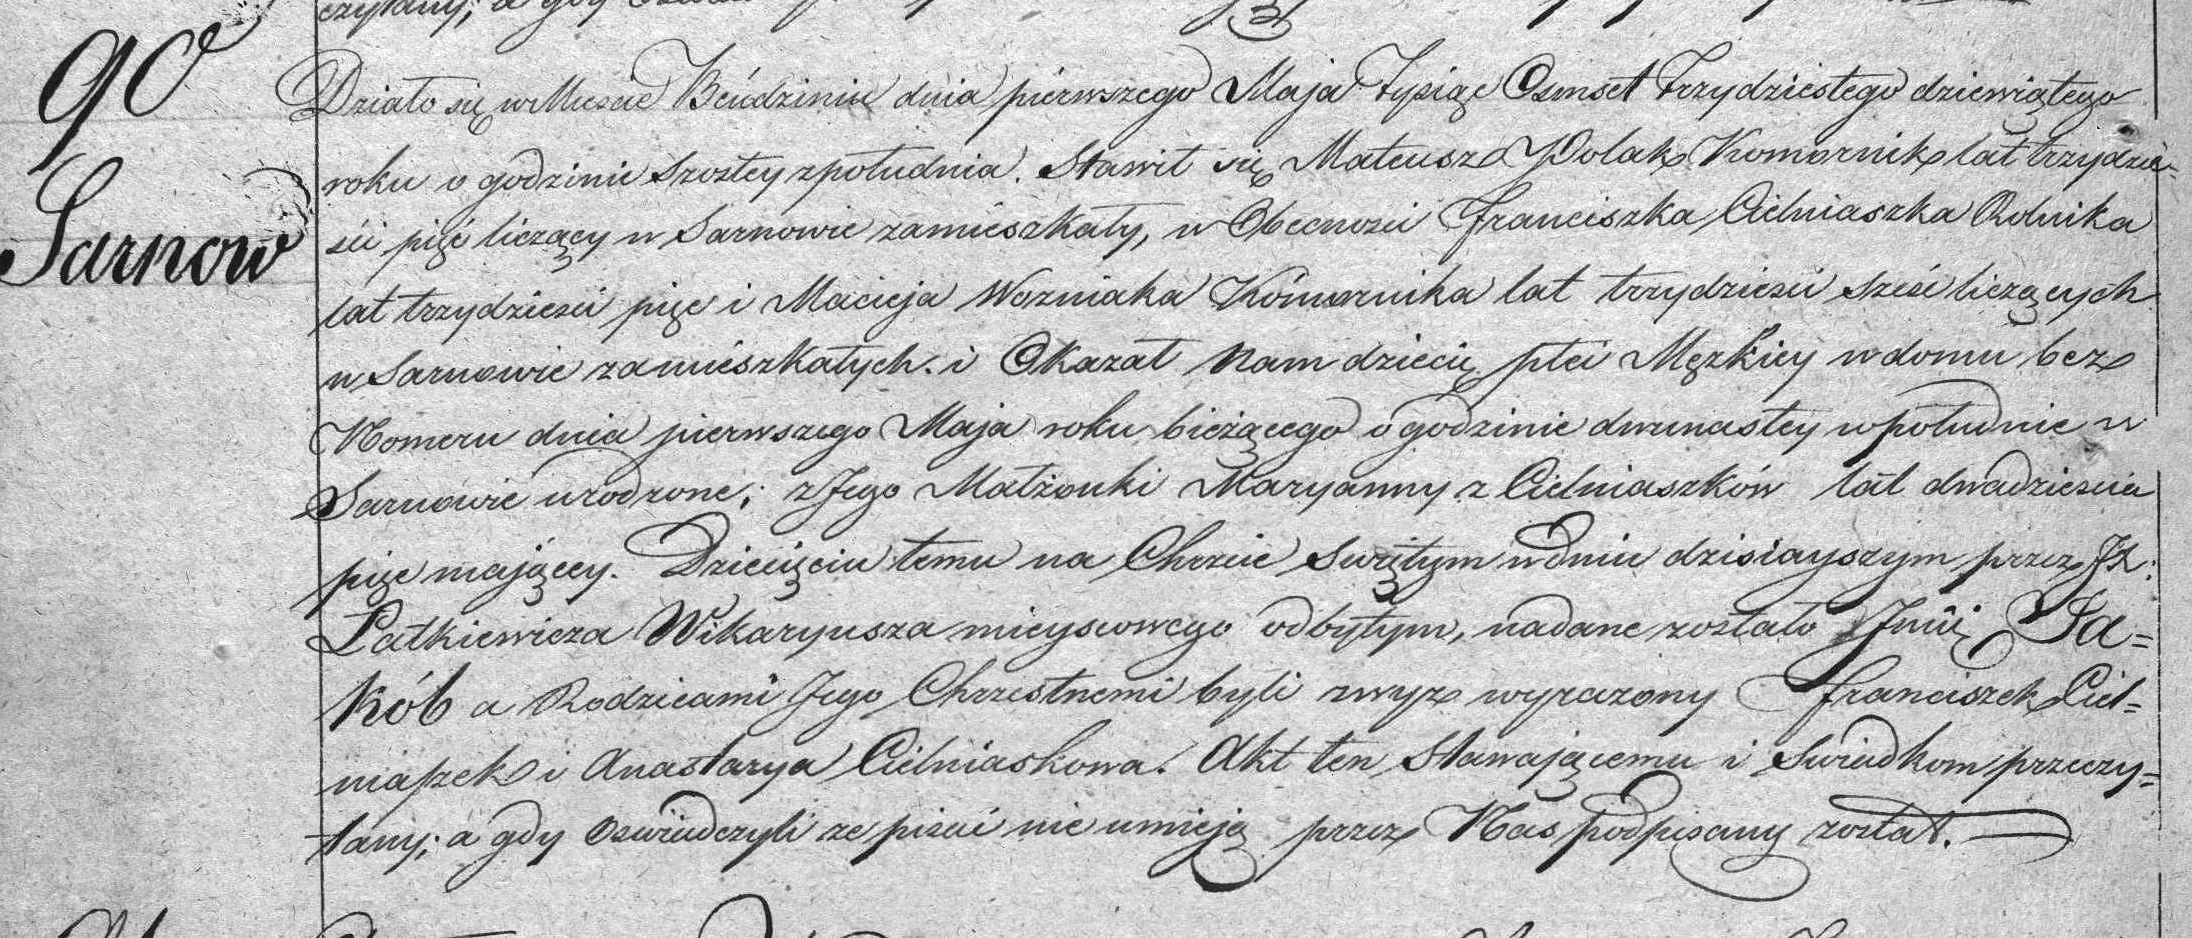 90
Sarnow
Działo się w Miescie Bendzinie dnia pierwszego Maja Tysiąc Osmset Trzydziestego dziewiątego
roku o godzinie szostey z południa. Stawił się Mateusz Polak Komornik lat trzydzie-
ści pięć liczący w Sarnowie zamieszkały, w Obecnosci Franciszka Cielniaszka Rolnika
lat trzydziesci pięc i Macieja Wozniaka Komornika lat trzydziesci sześć liczących
w Sarnowie zamieszkałych. i Okazał Nam dziecię płci Męzkiey w domu bez
Nomeru dnia pierwszego Maja roku bieżącego o godzinie dwunastey w południe w
Sarnowie urodzone; z Jego Małżonki Maryanny z Cielniaszków lat dwadziescia
pięc mającey. Dziecięciu temu na Chrzcie Swiętym w dniu dzisiayszym przez JX:
Patkiewicza Wikaryusza mieyscowego odbytym, nadane zostało Jmię Ja=
kób a Rodzicami Jego Chrzestnemi byli zwyz wyrazony Franciszek Ciel=
niaszek i Anastazya Cielniaskowa. Akt ten Stawającemu i Swiadkom przeczy=
tany; a gdy Oswiadczyli ze pisać nie umieją przez Nas podpisany został.